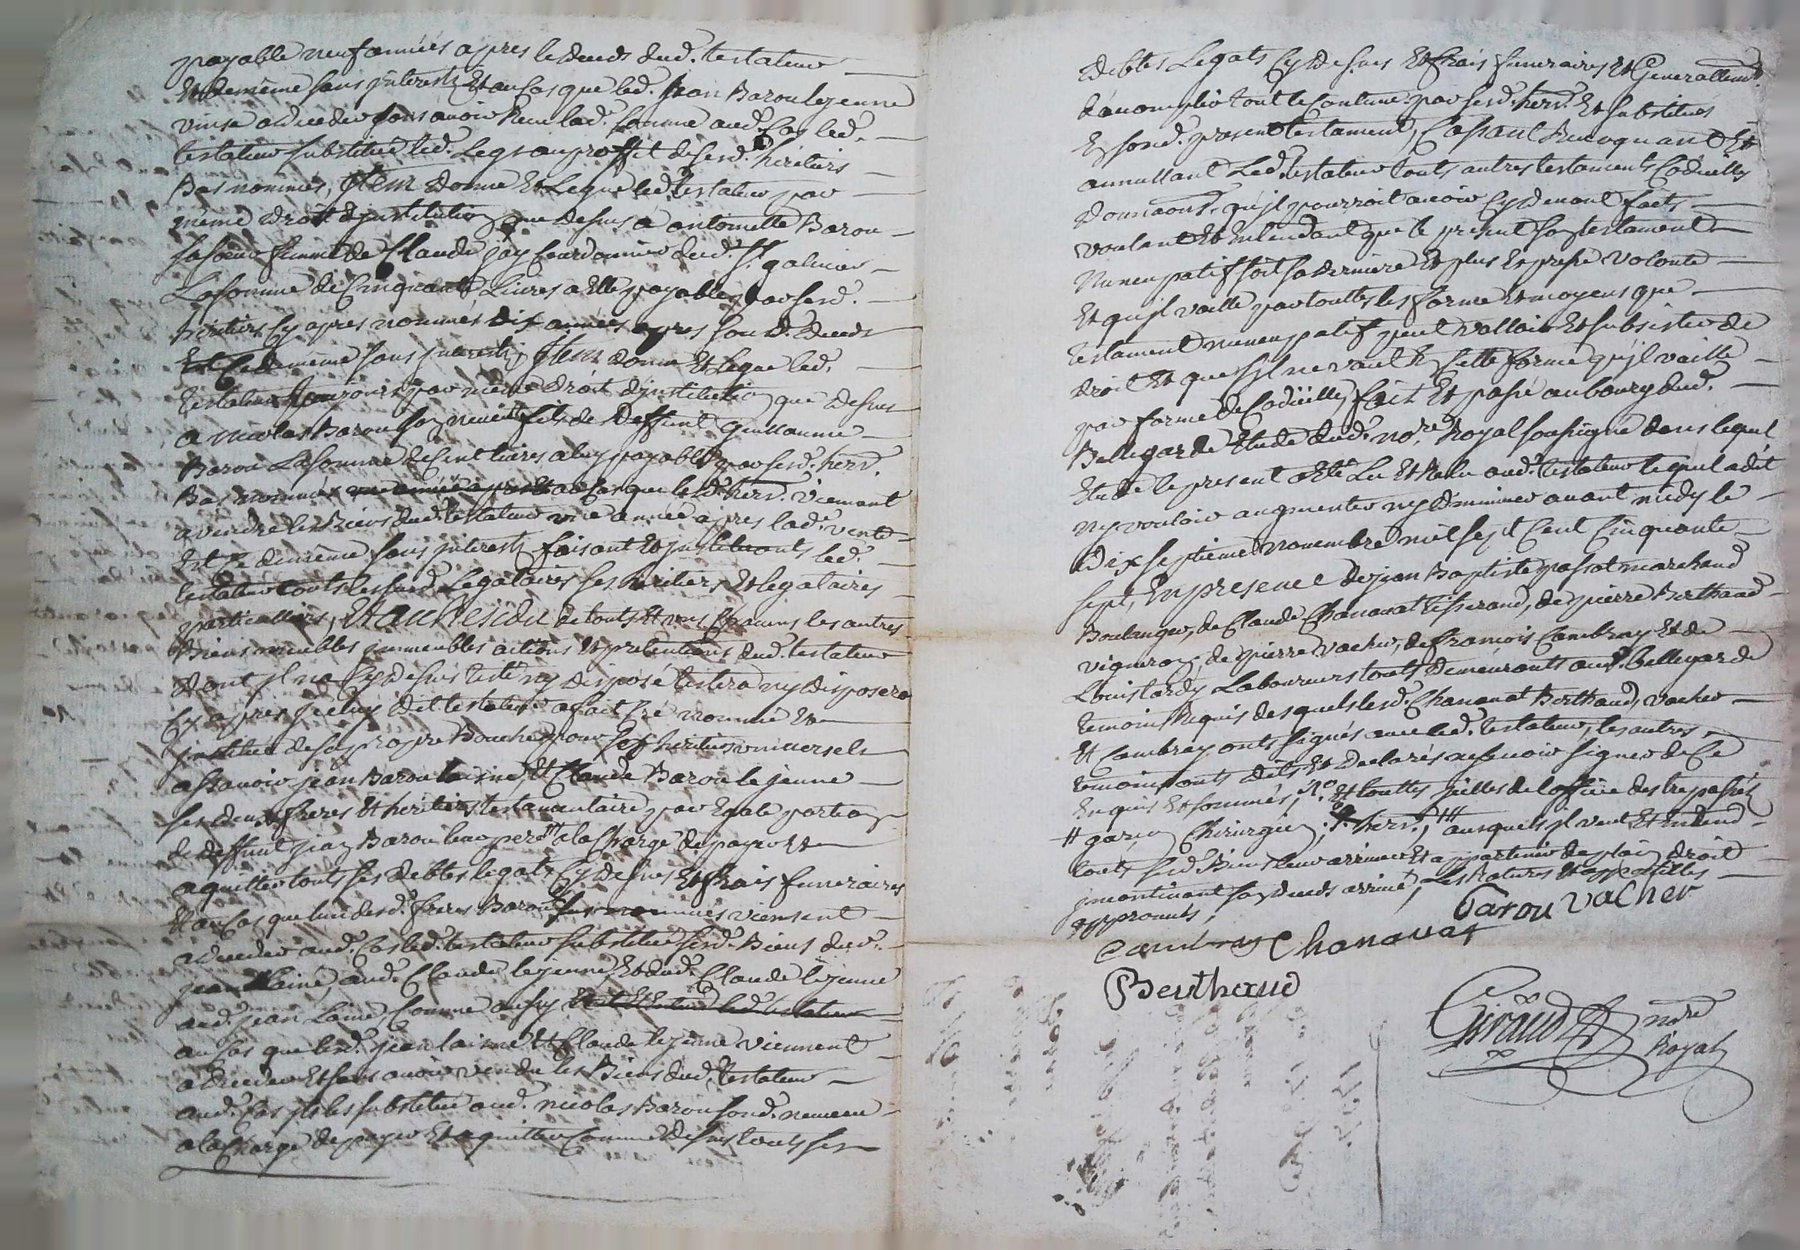 payable neuf années apres le deceds dud. testateur
Et de meme sans jnterests Et au cas que led. Jean Barou le jeune
vinse a deceder sans avoir receu lad. somme aud. Cas led.
testateur substitue led. Legs au proffit de sesd. heritiers
Bas nommés, Item donne Et Legue led. testateur par
meme droit d'jnstitution que desus a antoinette Barou
sa soeur femme de Claude jay Courdonnier dud. St. galmier
La somme de Cinquante Livres a Elle payables par sesd.
heritiers cy apres nommés dix années apres sond. deceds
Et de meme sans jnterests, Item donne Et legue led.
testateur toujours par meme droit d'jnstitution que desus
a Nicolas Barou son neveu fils de deffunt Guillaume
Barou La somme de Cent livres a luy payable par sesd. herrs.
Bas nommés une année apres au Cas que lesd. herrs. viennent
a vendre les Biens dud. testateur une année apres lad. vente
Et de meme sans jnterests, faisant Et jnstituants led.
testateur touts lessusd. Legataires ses heritiers Et legataires
particulliers, Et au Residu de touts Et uns Chacuns les autres
Biens meubles jmmeubles actions Et pretentions dud. testateur
dont jl n'a Cy desus testé ny disposé testera ny disposera
Cy apres jceluy dit testateur a fait Créé nommé Et
jnstitué de sa propre Bouche pour ses heritiers universels
assavoir jean Barou lainé, Et Claude Barou le jeune
ses deux freres Et heritiers testamentaire par Egale portion
de deffunt jean Barou leur pere a la Charge de payer Et
aquitter touts ses debtes legats Cy desus Et frais funeraires
Et au Cas que lun desd. freres Barou sus nommés viensent
a deceder aud. Cas led. testateur substitue sesd. Biens dud.
jean lainé, aud. Claude le jeune, Et dud. Claude le jeune
aud. jean Lainé, Comme aussy veut Et Entend led. testateur
au Cas que lesd. jean lainé Et Claude le jeune viennent
a deceder Et sans avoir vendu les Biens dud. testateur
aud. Cas jl les substitue aud. nicolas Barou sond. neveu
a la Charge de payer Et aquitter Comme desus touts ses
debtes Legats Cy desus Et frais funeraires Et Generallement
d'acomplir tout le Contenu par sesd. herrs. Et substitués
En sond. present testament, Cassant Revoquant Et
annullant Led. testateur touts autres testaments Codicilles
donnaons. qu'jl pourroit avoir Cy devant faits
voulant Et Entendant que le present son testament
Nuncupatif soit sa derniere Et plus Expresse volonté
Et qu'jl vaille par touttes les forme Et moyens que
testament nuncupatif peut valloir Et subsister de
droit Et que s'jl ne vaut En Cette forme qu'jl vaille
par forme de Codicille, fait Et passé au bourg dud.
Bellegarde Etude dud. nore. Royal soussigne dans lequel
Etude le present a Eté Lu Et Relu aud. testateur lequel a dit
ny vouloir augmenter ny diminuer avant midy le
Dix septieme novembre mil sept Cent Cinquante
sept, En presence de jean Baptiste passot marchand
Boulanger, de Claude Chanavat tisserand, de pierre Berthaud
vigneron, de pierre vacher, de francois Cambray Et de
Louis tardy Laboureurs touts demeurants aud. bellegarde
temoins Requis desquels lesd. Chanavat Berthaud, vacher
Et Cambray onts signés avec led. testateur, les autres
temoins onts dits Et declarés ne scavoir signer de Ce
Enquis Et sommés,
garçon Chirurgien, herrs.,
touts sesd. Biens leur arriver Et appartenir de plein droit
jncontinant son deceds arrivé,
approuvés,
Barou vacher
Cambray Chanavat
Berthaud
Giraud nore
Royal